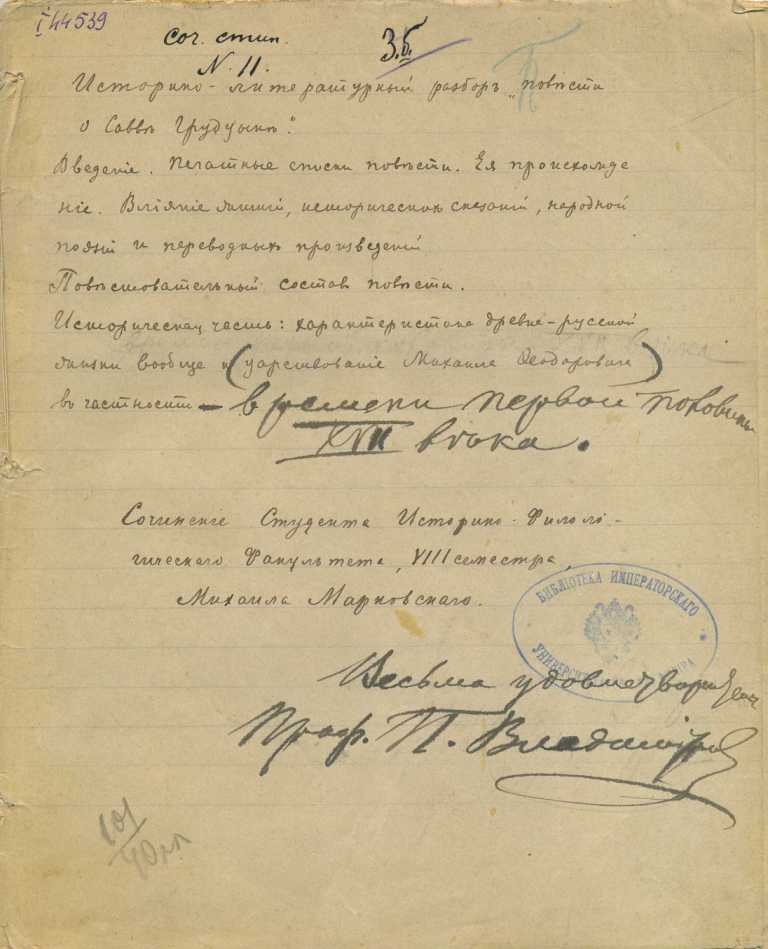 I 44539
соч. стип.
N. 11.
З.б.
Историко-литературный разборъ "повѣсти
о Саввѣ Грудцынѣ".
Введеніе. Печатные списки повѣсти. Ея происхожде
ніе. Вліяніе житій, историческихъ сказаній, народной
поэзіи и переводныхъ произведеній
Повѣствовательный составъ повѣсти.
Историческая часть: характеристика древне-русской
жизни вообще и (царствованіе Михаила Ѳеодоровича)
въ частности – времени первой половины
XVII вѣка.
Сочиненіе Студента Историко-Филоло-
гическаго Факультета, VIII семестра,
Михаила Марковскаго.
БИБЛІОТЕКА ИМПЕРАТОРСКАГО
Весьма удовлетворительно
Проф. П. Владиміровъ
101